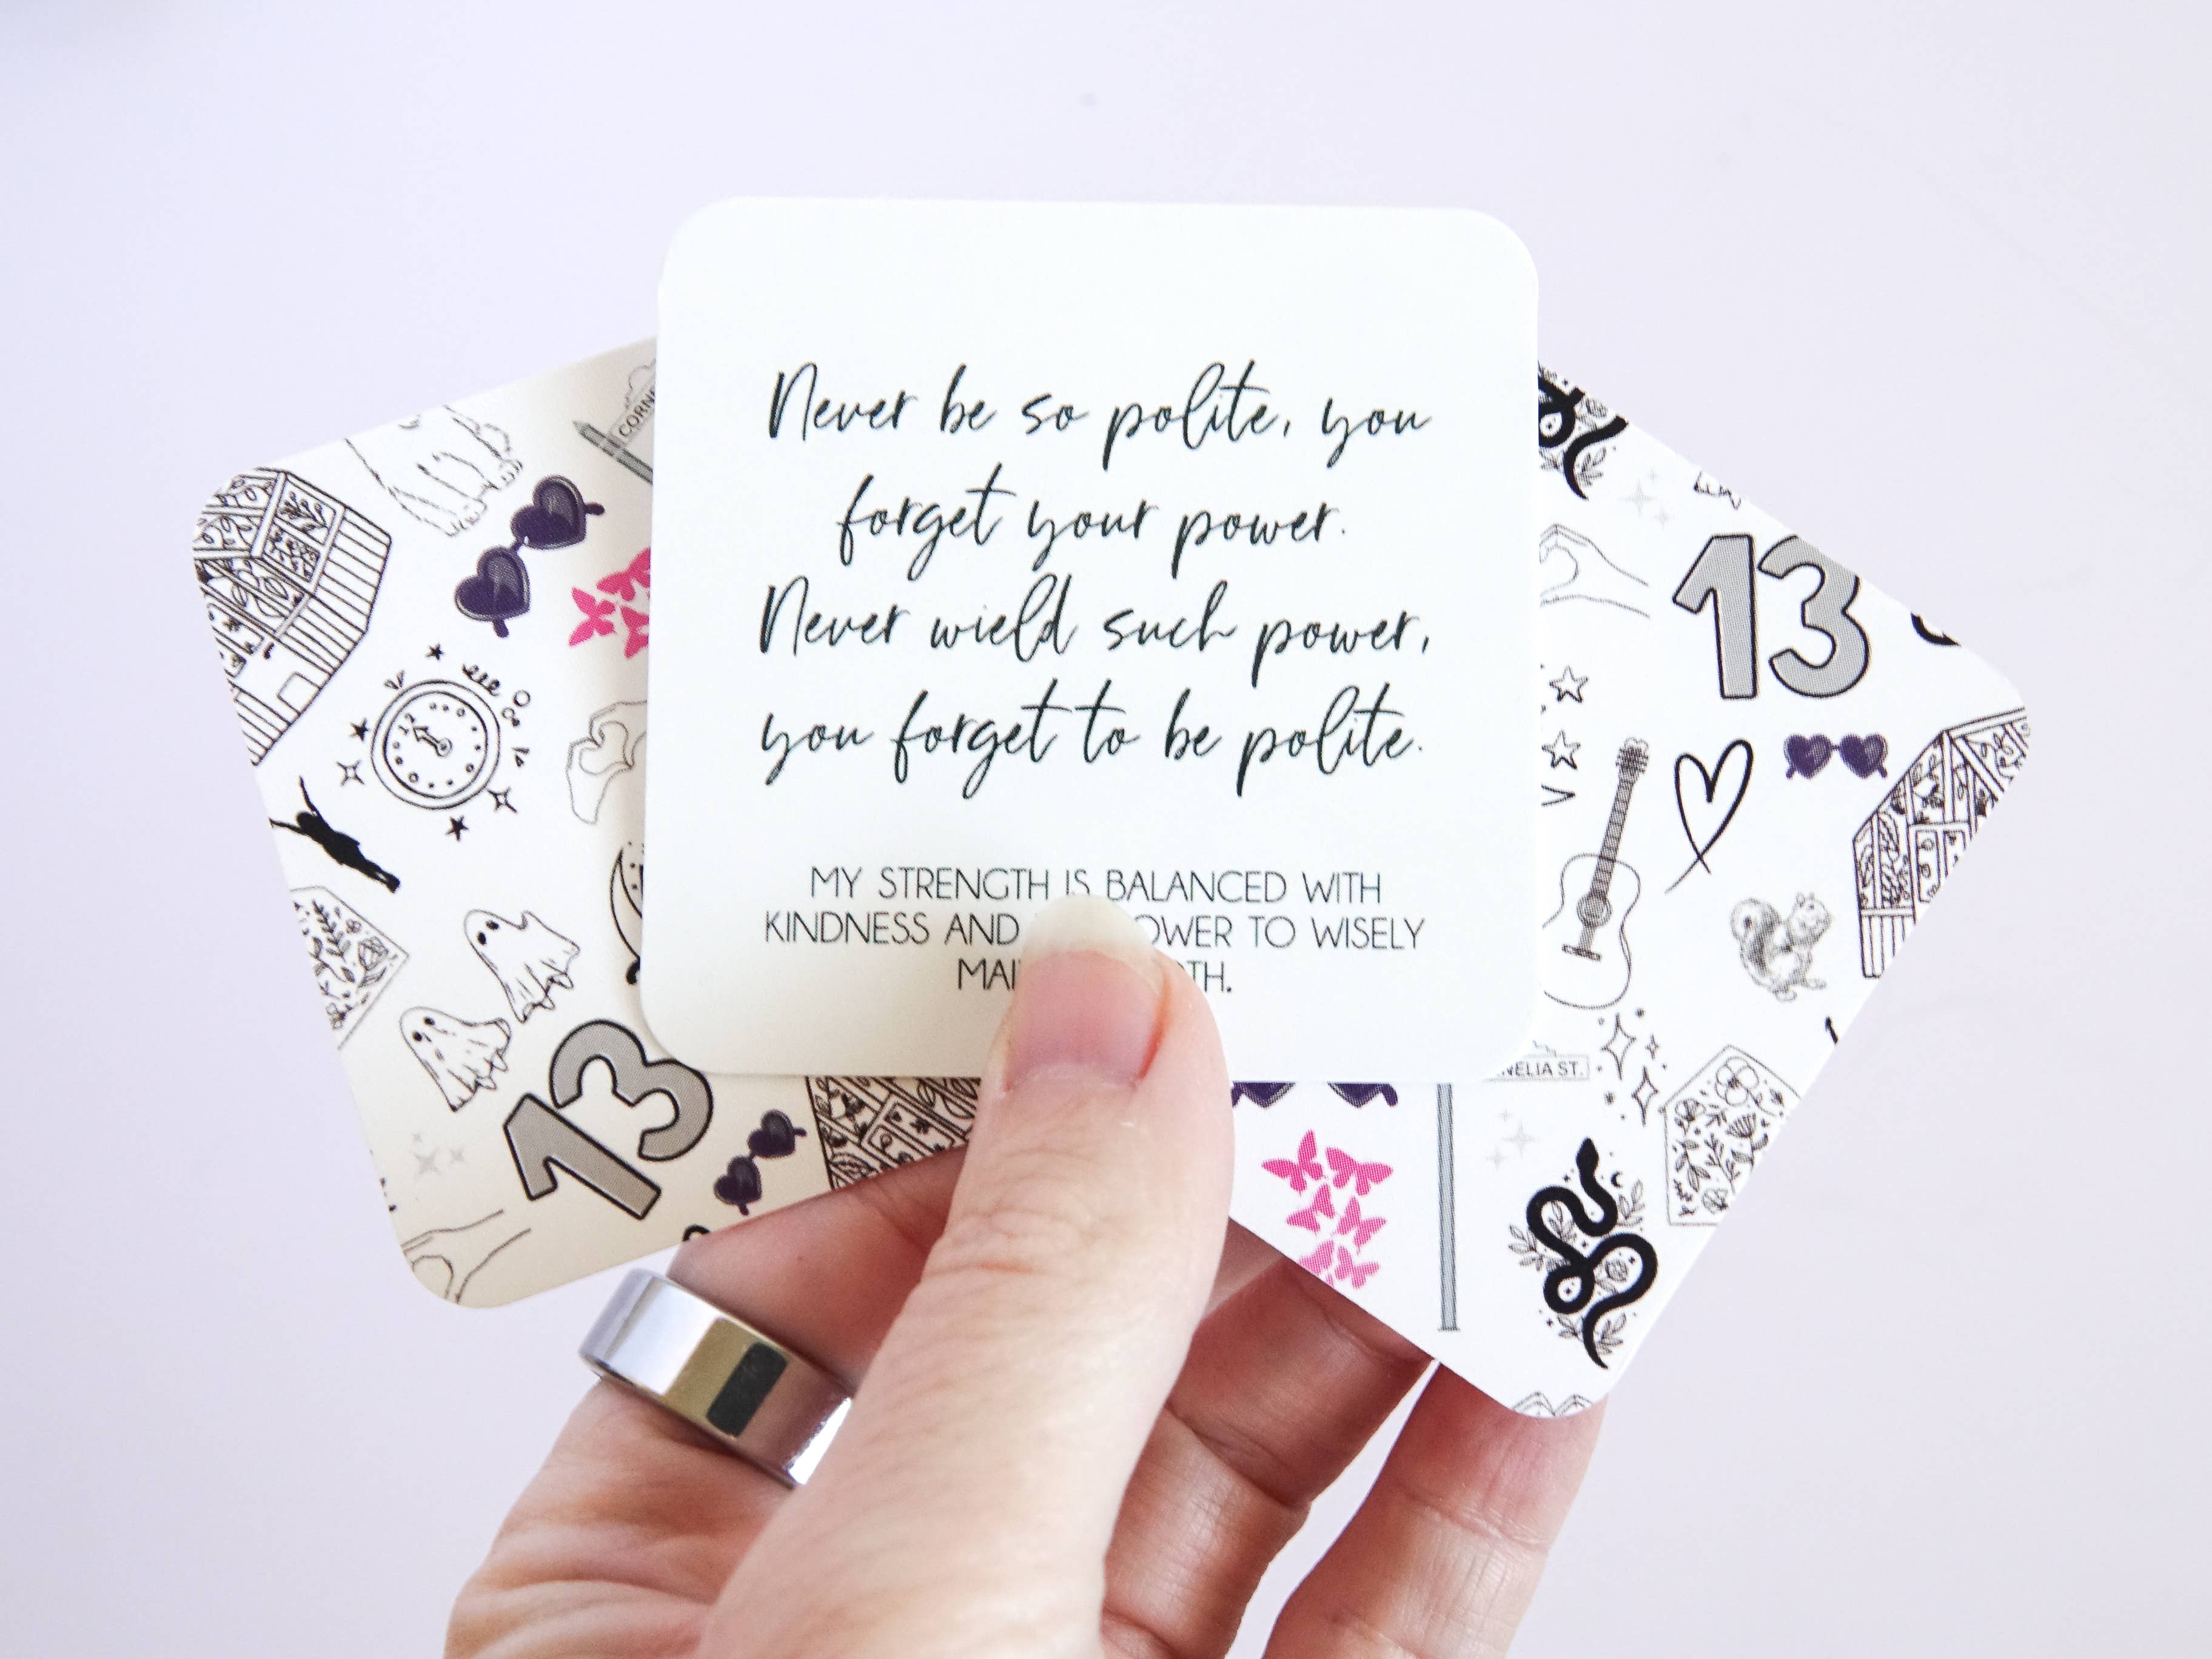 Never be so polite, you
forget your power.
Never wield such power,
you forget to be polite.
MY STRENGTH IS BALANCED WITH
KINDNESS AND OWER TO WISELY
MAI TH.
CORN
13
13
NELIA ST.
12